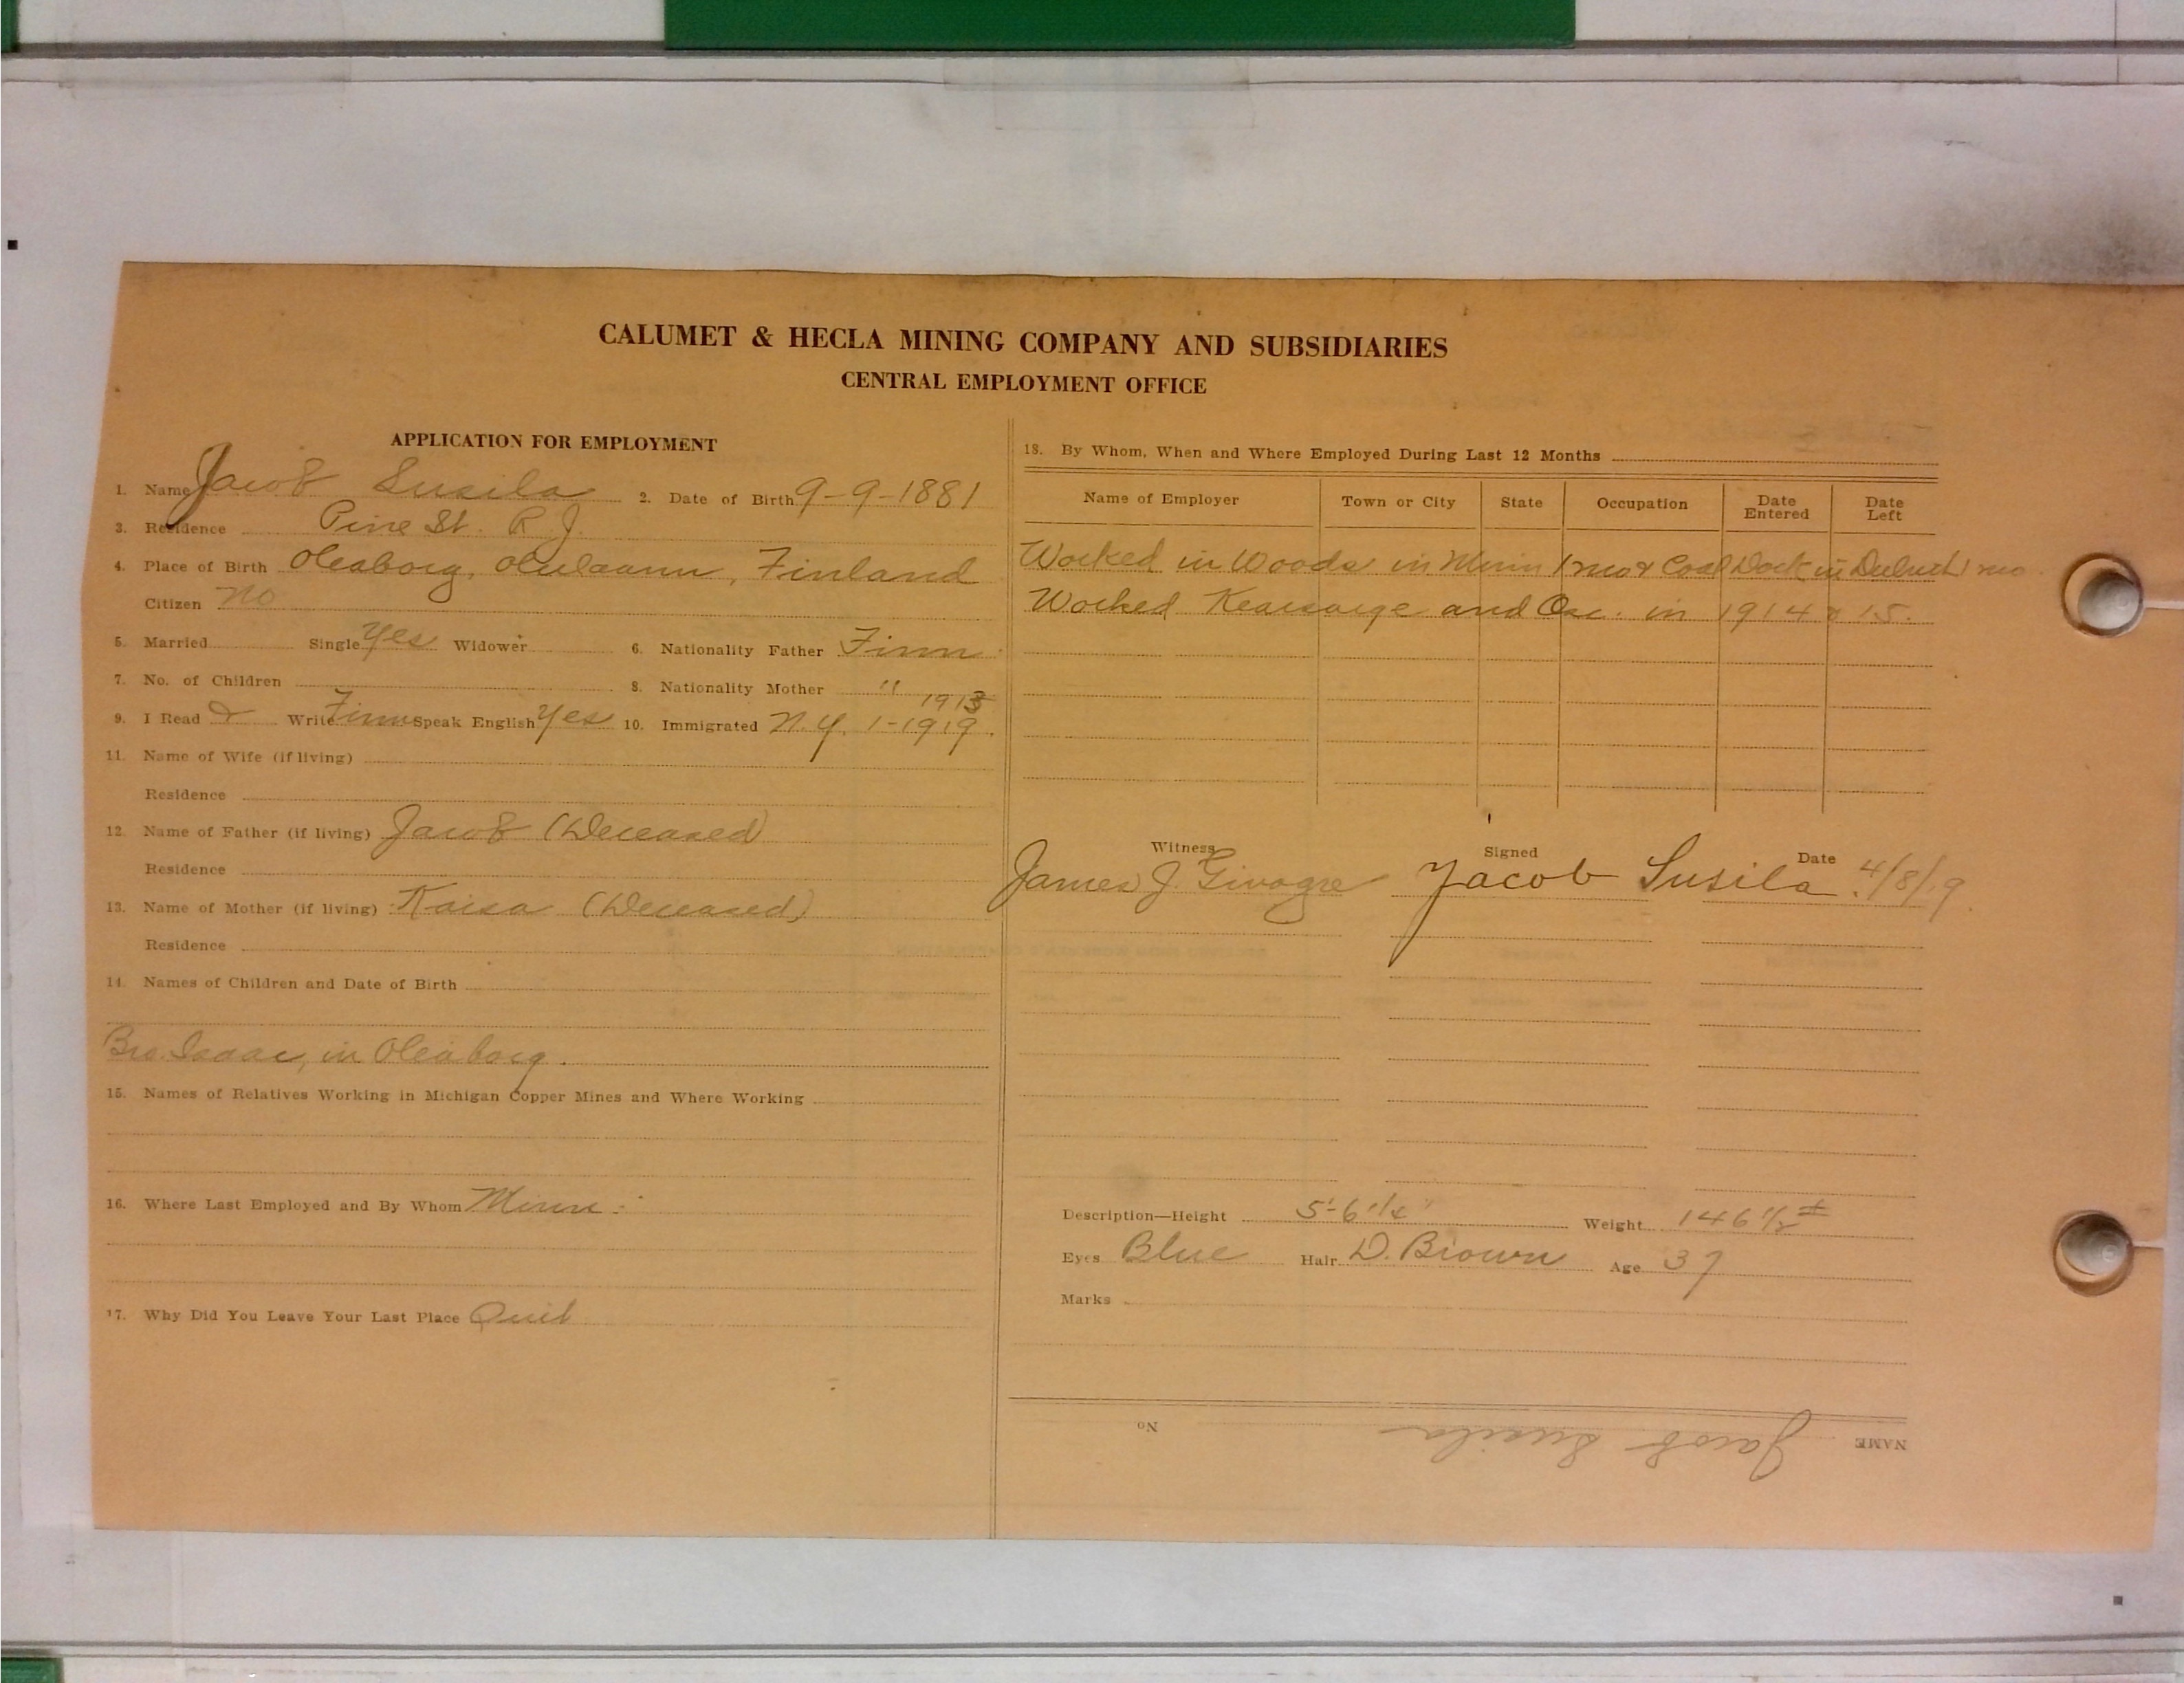 CALUMET & HECLA MINING COMPANY AND SUBSIDIARIES
CENTRAL EMPLOYMENT OFFICE
APPLICATION FOR EMPLOYMENT
1. Name Jacob Susila 2. Date of Birth 9-9-1881
3. Residence Pine St. R. J.
4. Place of Birth Oleaborg, Finland
Citizen No
5. Married Single Yes Widower 6. Nationality Father Finn
7. No. of Children 8. Nationality Mother "
1913
9. I Read & Write Finn Speak English Yes 10. Immigrated N.Y. 1-1919.
11. Name of Wife (if living)
Residence
12. Name of Father (if living) Jacob (Deceased)
Residence
13. Name of Mother (if living) Kaisa (Deceased)
Residence
14. Names of Children and Date of Birth
Bro. Isaac, in Oleaborg.
15. Names of Relatives Working in Michigan Copper Mines and Where Working
16. Where Last Employed and By Whom Minn.
17. Why Did You Leave Your Last Place Quit
18. By Whom, When and Where Employed During Last 12 Months
Name of Employer Town or City State Occupation Date Entered Date Left
Worked in Woods in Minn 1 mo & Coal Dock in Duluth 1 mo.
Worked Kearsarge and Osc. in 1914 & 15.
Witness Signed Date
James J. Jacob Susila 4/8/19.
Description—Height 5'-6 1/4" Weight 146 1/2 #
Eyes Blue Hair D. Brown Age 37
Marks
NAME Jacob Susila No